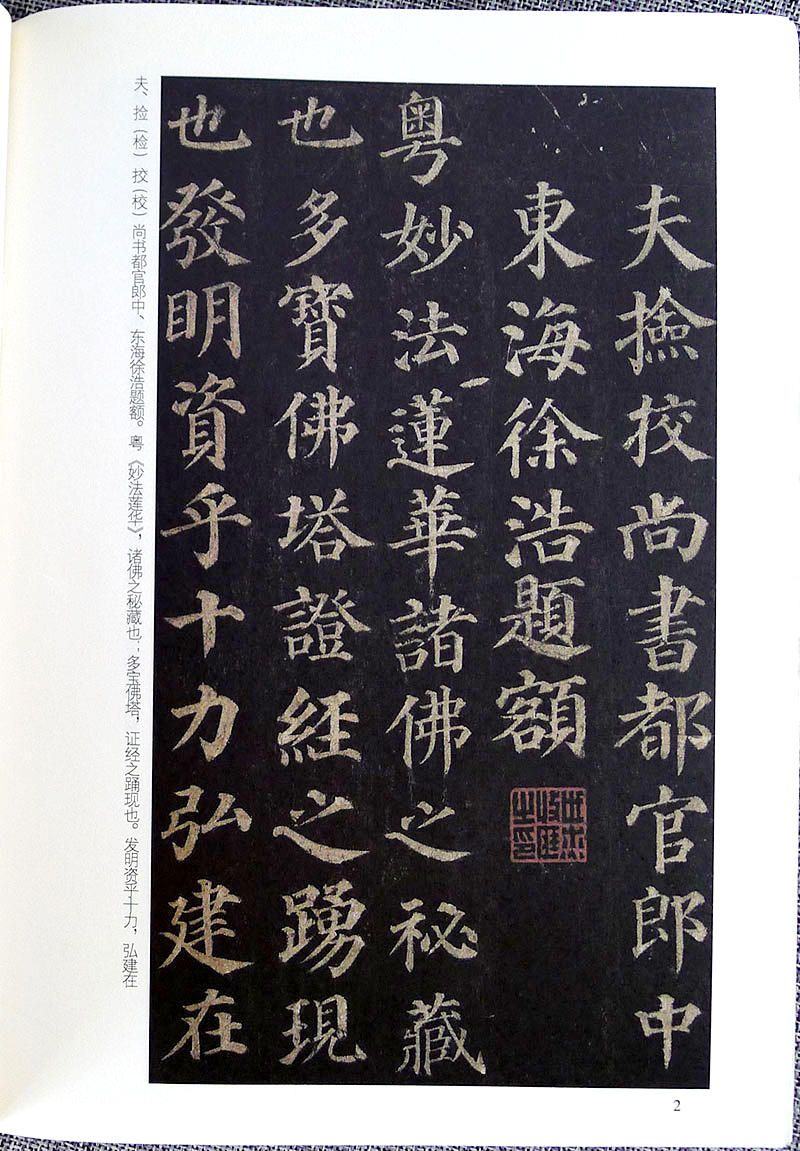 夫撿挍尚書都官郎中
東海徐浩題額
粵妙法蓮華諸佛之秘藏
也多寶佛塔證經之踴現
也發明資乎十力弘建在
夫、捡（检）挍（校）尚书都官郎中、东海徐浩题额。粤《妙法莲华》，诸佛之秘藏也；多宝佛塔，证经之踊现也。发明资乎十力，弘建在
2